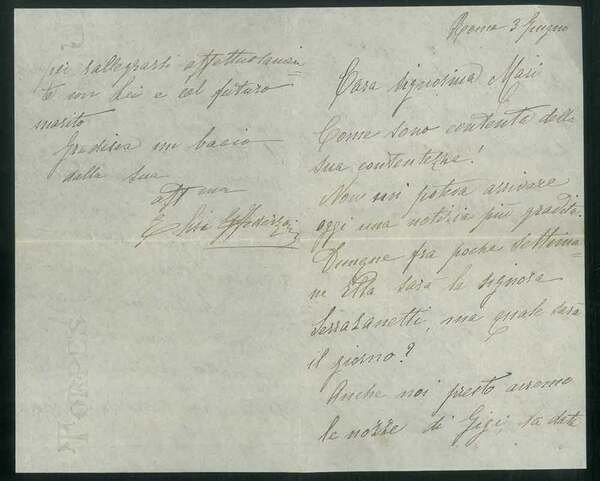 Roma 3 Giugno
Cara Signorina Mari
Come sono contenta della
sua contentezza!
Non mi poteva arrivare
oggi una notizia più gradita.
Dunque fra poche settima-
ne Ella sarà la signora
Serrazanetti, ma quale sarà
il giorno?
Anche noi presto avremo
le nozze di Gigi, la data
per rallegrarsi affettuosamen-
te con Lei e col futuro
marito
Gradisca un bacio
dalla sua
aff ma